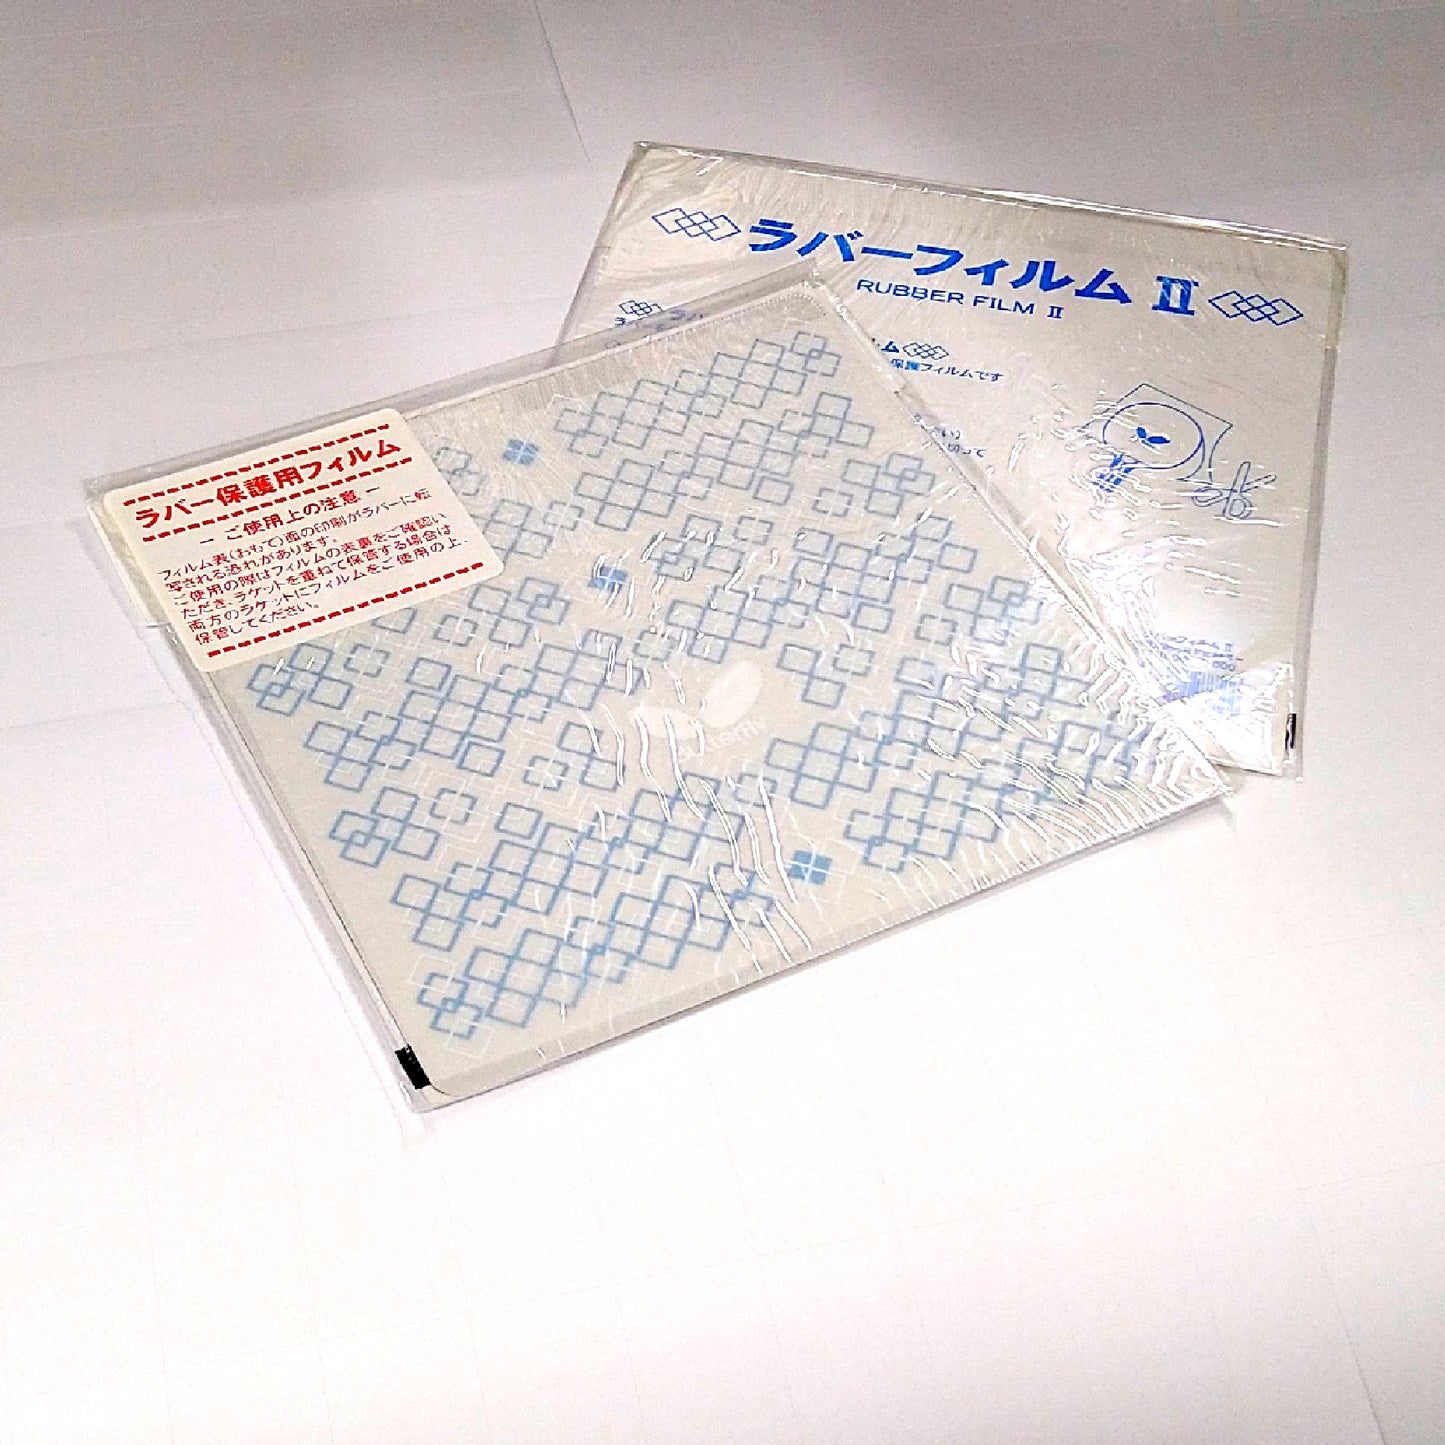 ラバーフィルム II
RUBBER FILM II
ム
保護フィルムです
ラバー保護用フィルム
− ご使用上の注意 −
フィルム表(おもて)面の印刷がラバーに転
写される恐れがあります。
ご使用の際はフィルムの表裏をご確認い
ただき、ラケットを重ねて保管する場合は
両方のラケットにフィルムをご使用の上、
保管してください。
Butterfly